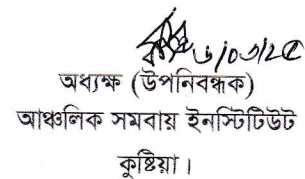 ৬/০৩/২৫
অধ্যক্ষ (উপনিবন্ধক)
আঞ্চলিক সমবায় ইনস্টিটিউট
কুষ্টিয়া।